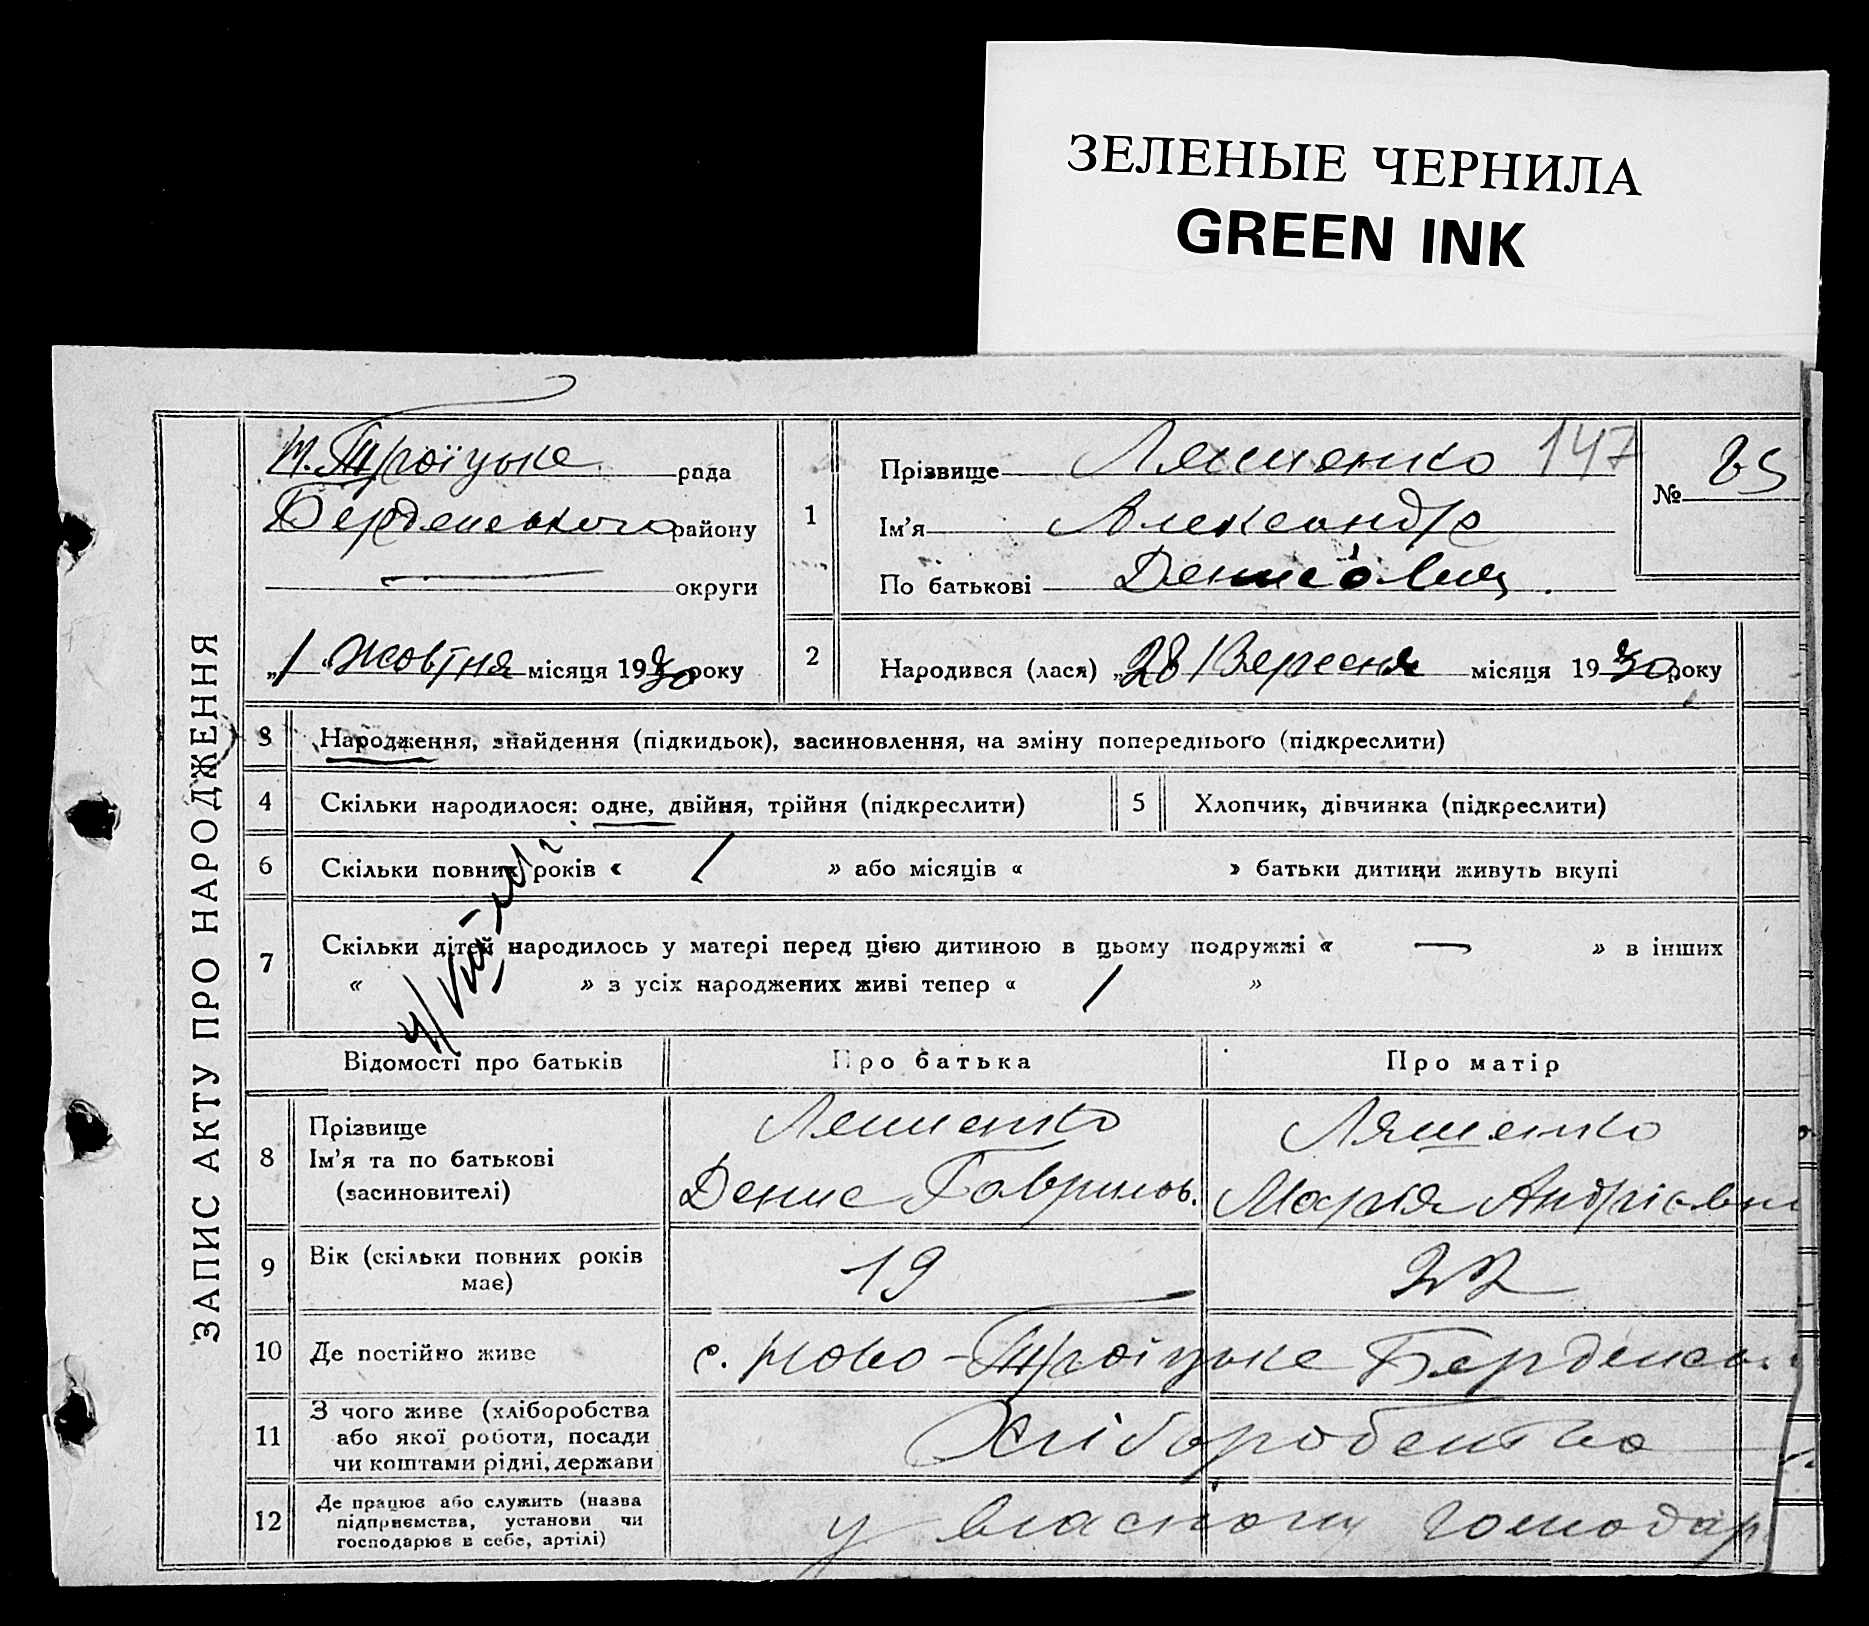 ЗЕЛЕНЫЕ ЧЕРНИЛА
GREEN INK
ЗАПИС АКТУ ПРО НАРОДЖЕННЯ
Н.Троїцьке рада
Берденського району
— округи
„1" Жовтня місяця 1930 року
1
Прізвище Ляшенко 147
Ім'я Александр
По батькові Денисович.
№ 25
2 Народився (лася) „28" Вересня місяця 1930 року
3 Народження, знайдення (підкидьок), засиновлення, на зміну попереднього (підкреслити)
4 Скільки народилося: одне, двійня, трійня (підкреслити)
5 Хлопчик, дівчинка (підкреслити)
6 Скільки повних років « 1 » або місяців « » батьки дитини живуть вкупі
7 Скільки дітей народилось у матері перед цією дитиною в цьому подружжі « — » в інших
« » з усіх народжених живі тепер « 1 »
Відомості про батьків Про батька Про матір
8 Прізвище
Ім'я та по батькові
(засиновителі)
Лешенко
Денис Гаврилов.
Ляшенко
Марія Андрієвн
9 Вік (скільки повних років
має)
19
22
10 Де постійно живе с. Ново-Троїцьке Берденсь
11 З чого живе (хліборобства
або якої роботи, посади
чи коштами рідні, держави
Хліборобство
12 Де працює або служить (назва
підприємства, установи чи
господарює в себе, артілі)
у власному господар